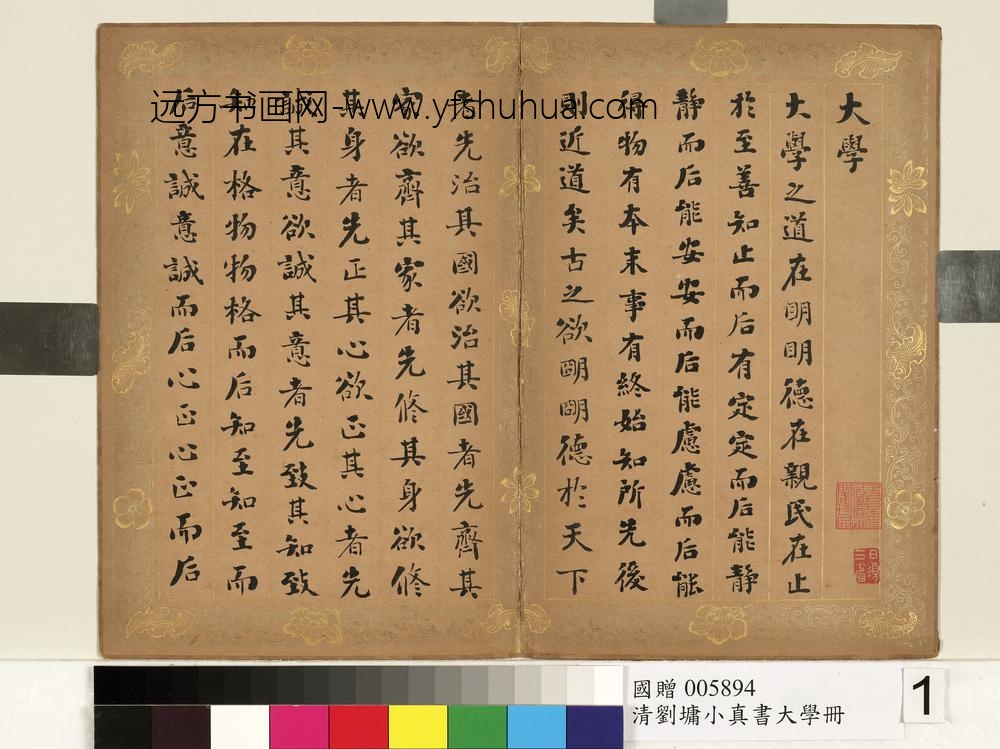 大學
大學之道在明明德在親民在止
於至善知止而后有定定而后能靜
靜而后能安安而后能慮慮而后能
得物有本末事有終始知所先後
則近道矣古之欲明明德於天下
者先治其國欲治其國者先齊其
家欲齊其家者先修其身欲修
其身者先正其心欲正其心者先
誠其意欲誠其意者先致其知致
知在格物物格而后知至知至而
后意誠意誠而后心正心正而后
远方书画网-www.yfshuhua.com
國贈 005894
清劉墉小真書大學冊
1